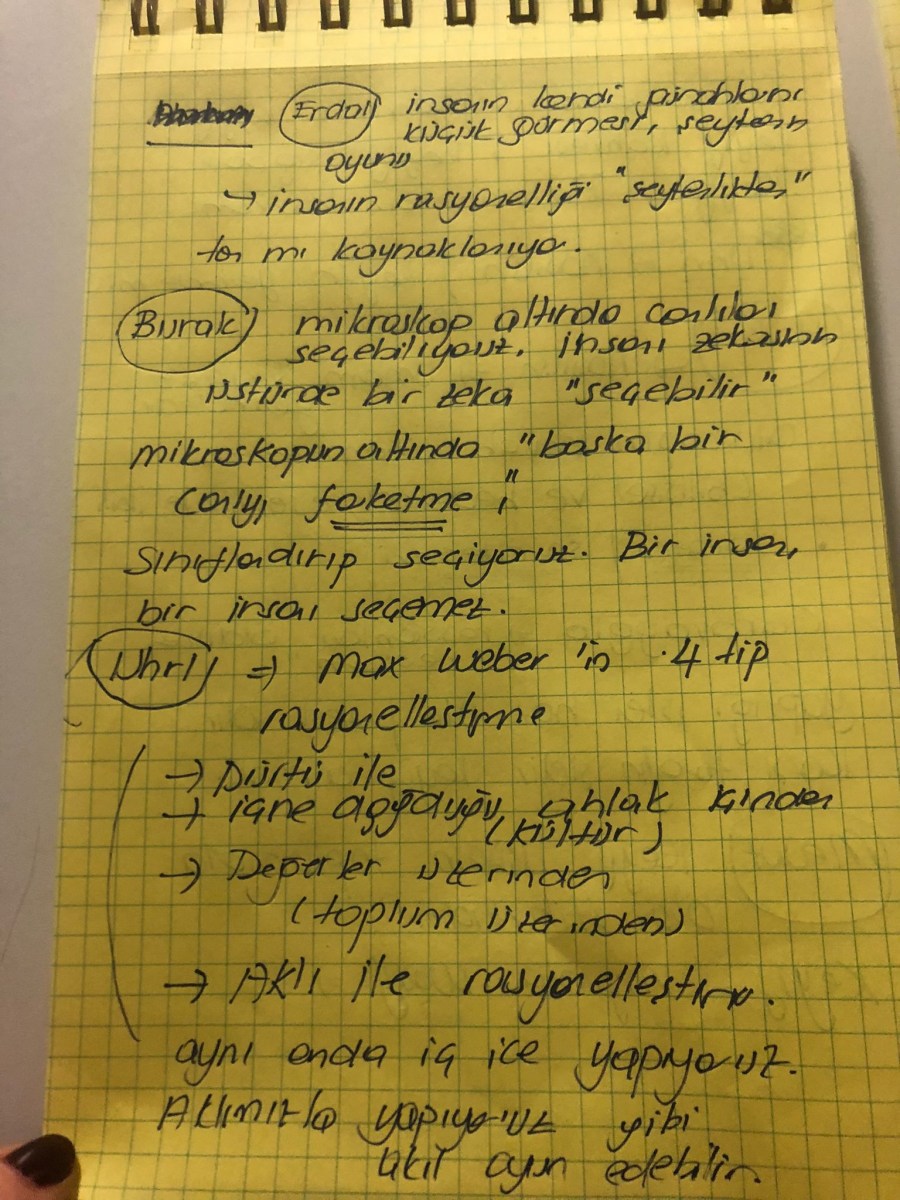 Erdal insanın kendi günahlarını
küçük görmesi, şeytanın
oyunu
→ insanın rasyonelliği "şeytanlıktan"
tan mı kaynaklanıyo.
Burak mikroskop altında canlıları
seçebiliyoruz. insan zekasının
üstünde bir zeka "seçebilir"
mikroskopun altında "başka bir
canlıyı farketme"
Sınıflandırıp seçiyoruz. Bir insan,
bir insanı seçemez.
⇒ Max Weber'in 4 tip
rasyonelleştirme
→ Dürtü ile
→ içine ahlak içinden
(kültür)
→ Değerler üzerinden
(toplum üzerinden)
→ Aklı ile rasyonelleştirme.
aynı anda iç içe yapıyoruz.
Aklımızla yapıyoruz gibi
akıl oyun edebilir.